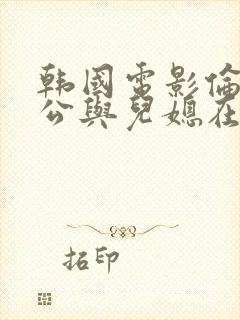 韩國電影倫
公與兒媳在
拓印